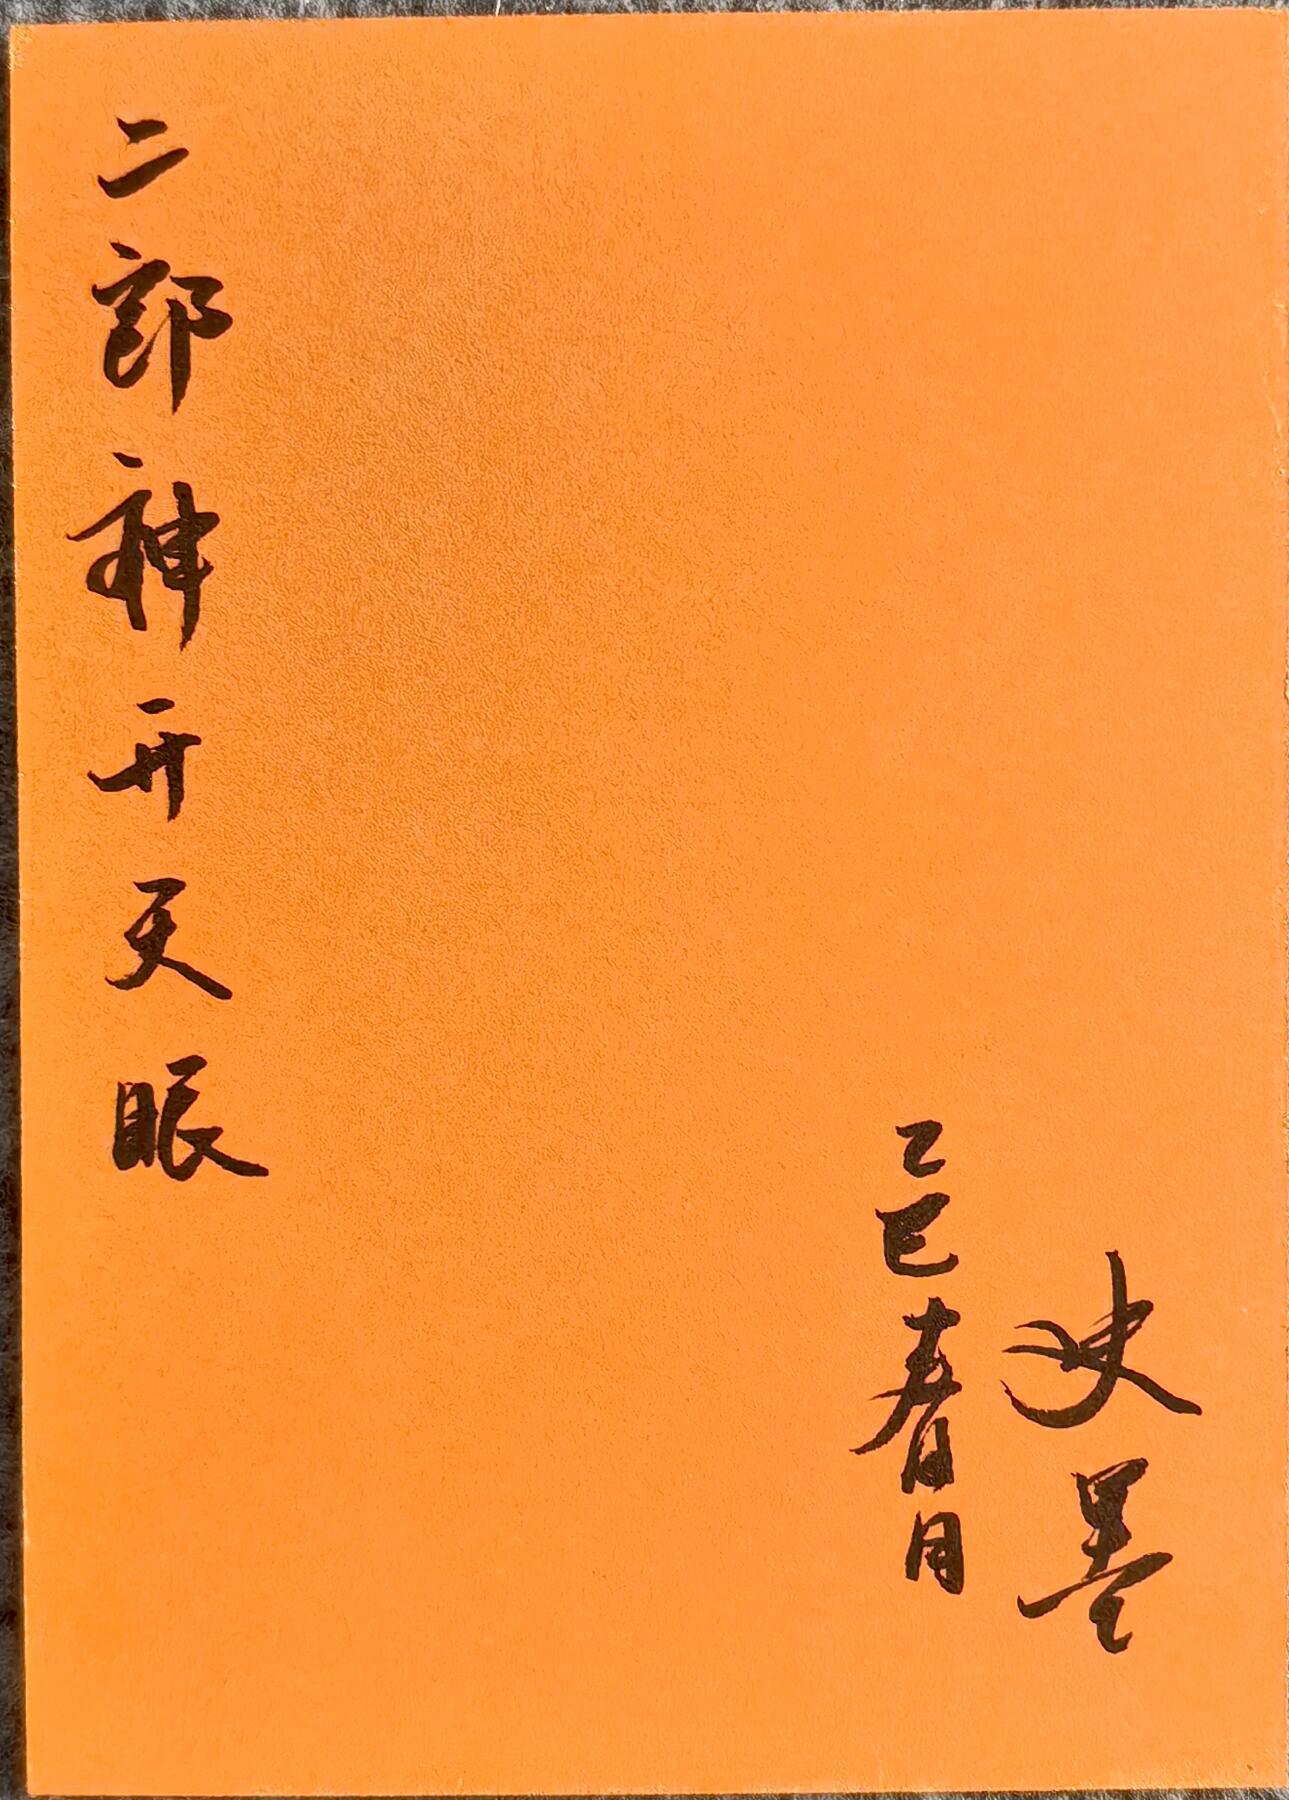 二郎神开天眼
乙巳春月
墨